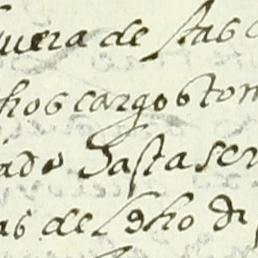 fuera de stas
hos cargos tom
ado hasta ser
as de l dho di